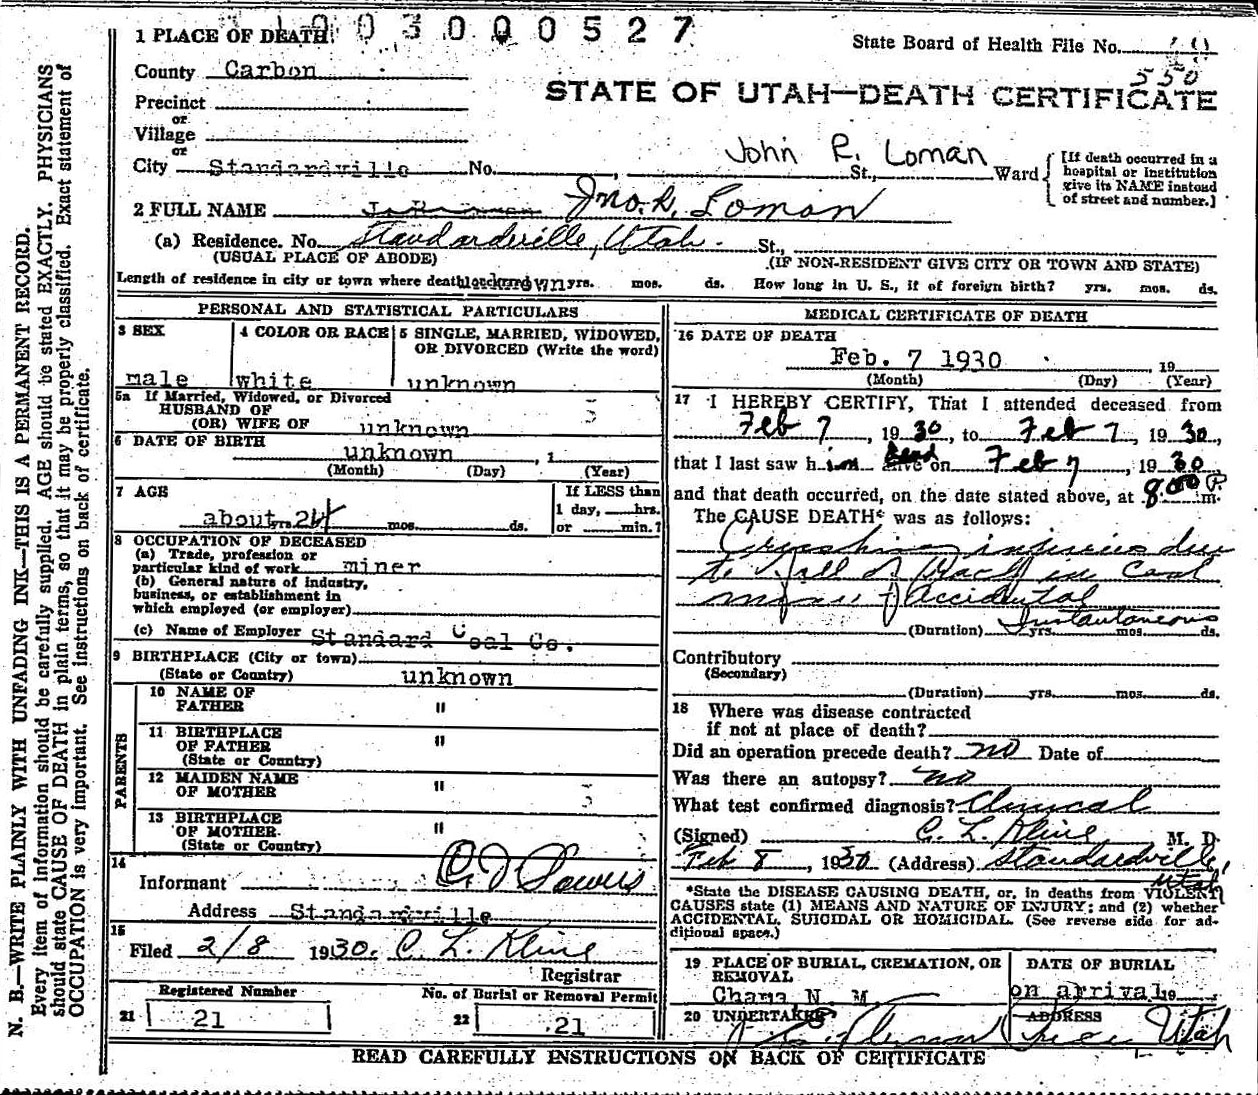 1003000527
1 PLACE OF DEATH
State Board of Health File No. 19
550
County Carbon
STATE OF UTAH—DEATH CERTIFICATE
Precinct
or
Village
or
City Standardville No. St., Ward
John R. Loman
[If death occurred in a
hospital or institution
give its NAME instead
of street and number.]
2 FULL NAME Jno. R. Loman
(a) Residence. No. Standardville, Utah. St.,
(USUAL PLACE OF ABODE)
(IF NON-RESIDENT GIVE CITY OR TOWN AND STATE)
Length of residence in city or town where death occurred yrs. mos. ds. How long in U. S., if of foreign birth? yrs. mos. ds.
PERSONAL AND STATISTICAL PARTICULARS
3 SEX
male
4 COLOR OR RACE
white
5 SINGLE, MARRIED, WIDOWED,
OR DIVORCED (Write the word)
unknown
5a If Married, Widowed, or Divorced
HUSBAND OF
(OR) WIFE OF unknown
6 DATE OF BIRTH
unknown , 1
(Month) (Day) (Year)
7 AGE
about yrs. 24 mos. ds.
If LESS than
1 day, hrs.
or min.?
8 OCCUPATION OF DECEASED
(a) Trade, profession or
particular kind of work miner
(b) General nature of industry,
business, or establishment in
which employed (or employer)
(c) Name of Employer Standard Coal Co.
9 BIRTHPLACE (City or town)
(State or Country) unknown
PARENTS
10 NAME OF
FATHER "
11 BIRTHPLACE
OF FATHER "
(State or Country)
12 MAIDEN NAME
OF MOTHER "
13 BIRTHPLACE
OF MOTHER "
(State or Country)
14
Informant
Address Standardville
15
Filed 2/8 1930. C. L. Kline
Registrar
Registered Number
21 21
No. of Burial or Removal Permit
22 21
MEDICAL CERTIFICATE OF DEATH
16 DATE OF DEATH
Feb. 7 1930 , 19
(Month) (Day) (Year)
17 I HEREBY CERTIFY, That I attended deceased from
Feb 7 , 1930, to Feb 7, 1930,
that I last saw him dead on Feb 7, 1930
and that death occurred, on the date stated above, at 8:00 P. m.
The CAUSE DEATH* was as follows:
Crushing injuries due
to fall of Rock in Coal
mine Accidental
Instantaneous
(Duration) yrs. mos. ds.
Contributory
(Secondary)
(Duration) yrs. mos. ds.
18 Where was disease contracted
if not at place of death?
Did an operation precede death? no Date of
Was there an autopsy? no
What test confirmed diagnosis? Clinical
(Signed) C. L. Kline M. D.
Feb 8 , 1930 (Address) Standardville,
Utah
*State the DISEASE CAUSING DEATH, or, in deaths from VIOLENT
CAUSES state (1) MEANS AND NATURE OF INJURY; and (2) whether
ACCIDENTAL, SUICIDAL OR HOMICIDAL. (See reverse side for ad-
ditional space.)
19 PLACE OF BURIAL, CREMATION, OR
REMOVAL
Chama, N. M.
DATE OF BURIAL
on arrival 19
20 UNDERTAKER
ADDRESS
Price, Utah
READ CAREFULLY INSTRUCTIONS ON BACK OF CERTIFICATE
N. B.—WRITE PLAINLY WITH UNFADING INK—THIS IS A PERMANENT RECORD.
Every item of information should be carefully supplied. AGE should be stated EXACTLY. PHYSICIANS
should state CAUSE OF DEATH in plain terms, so that it may be properly classified. Exact statement of
OCCUPATION is very important. See instructions on back of certificate.